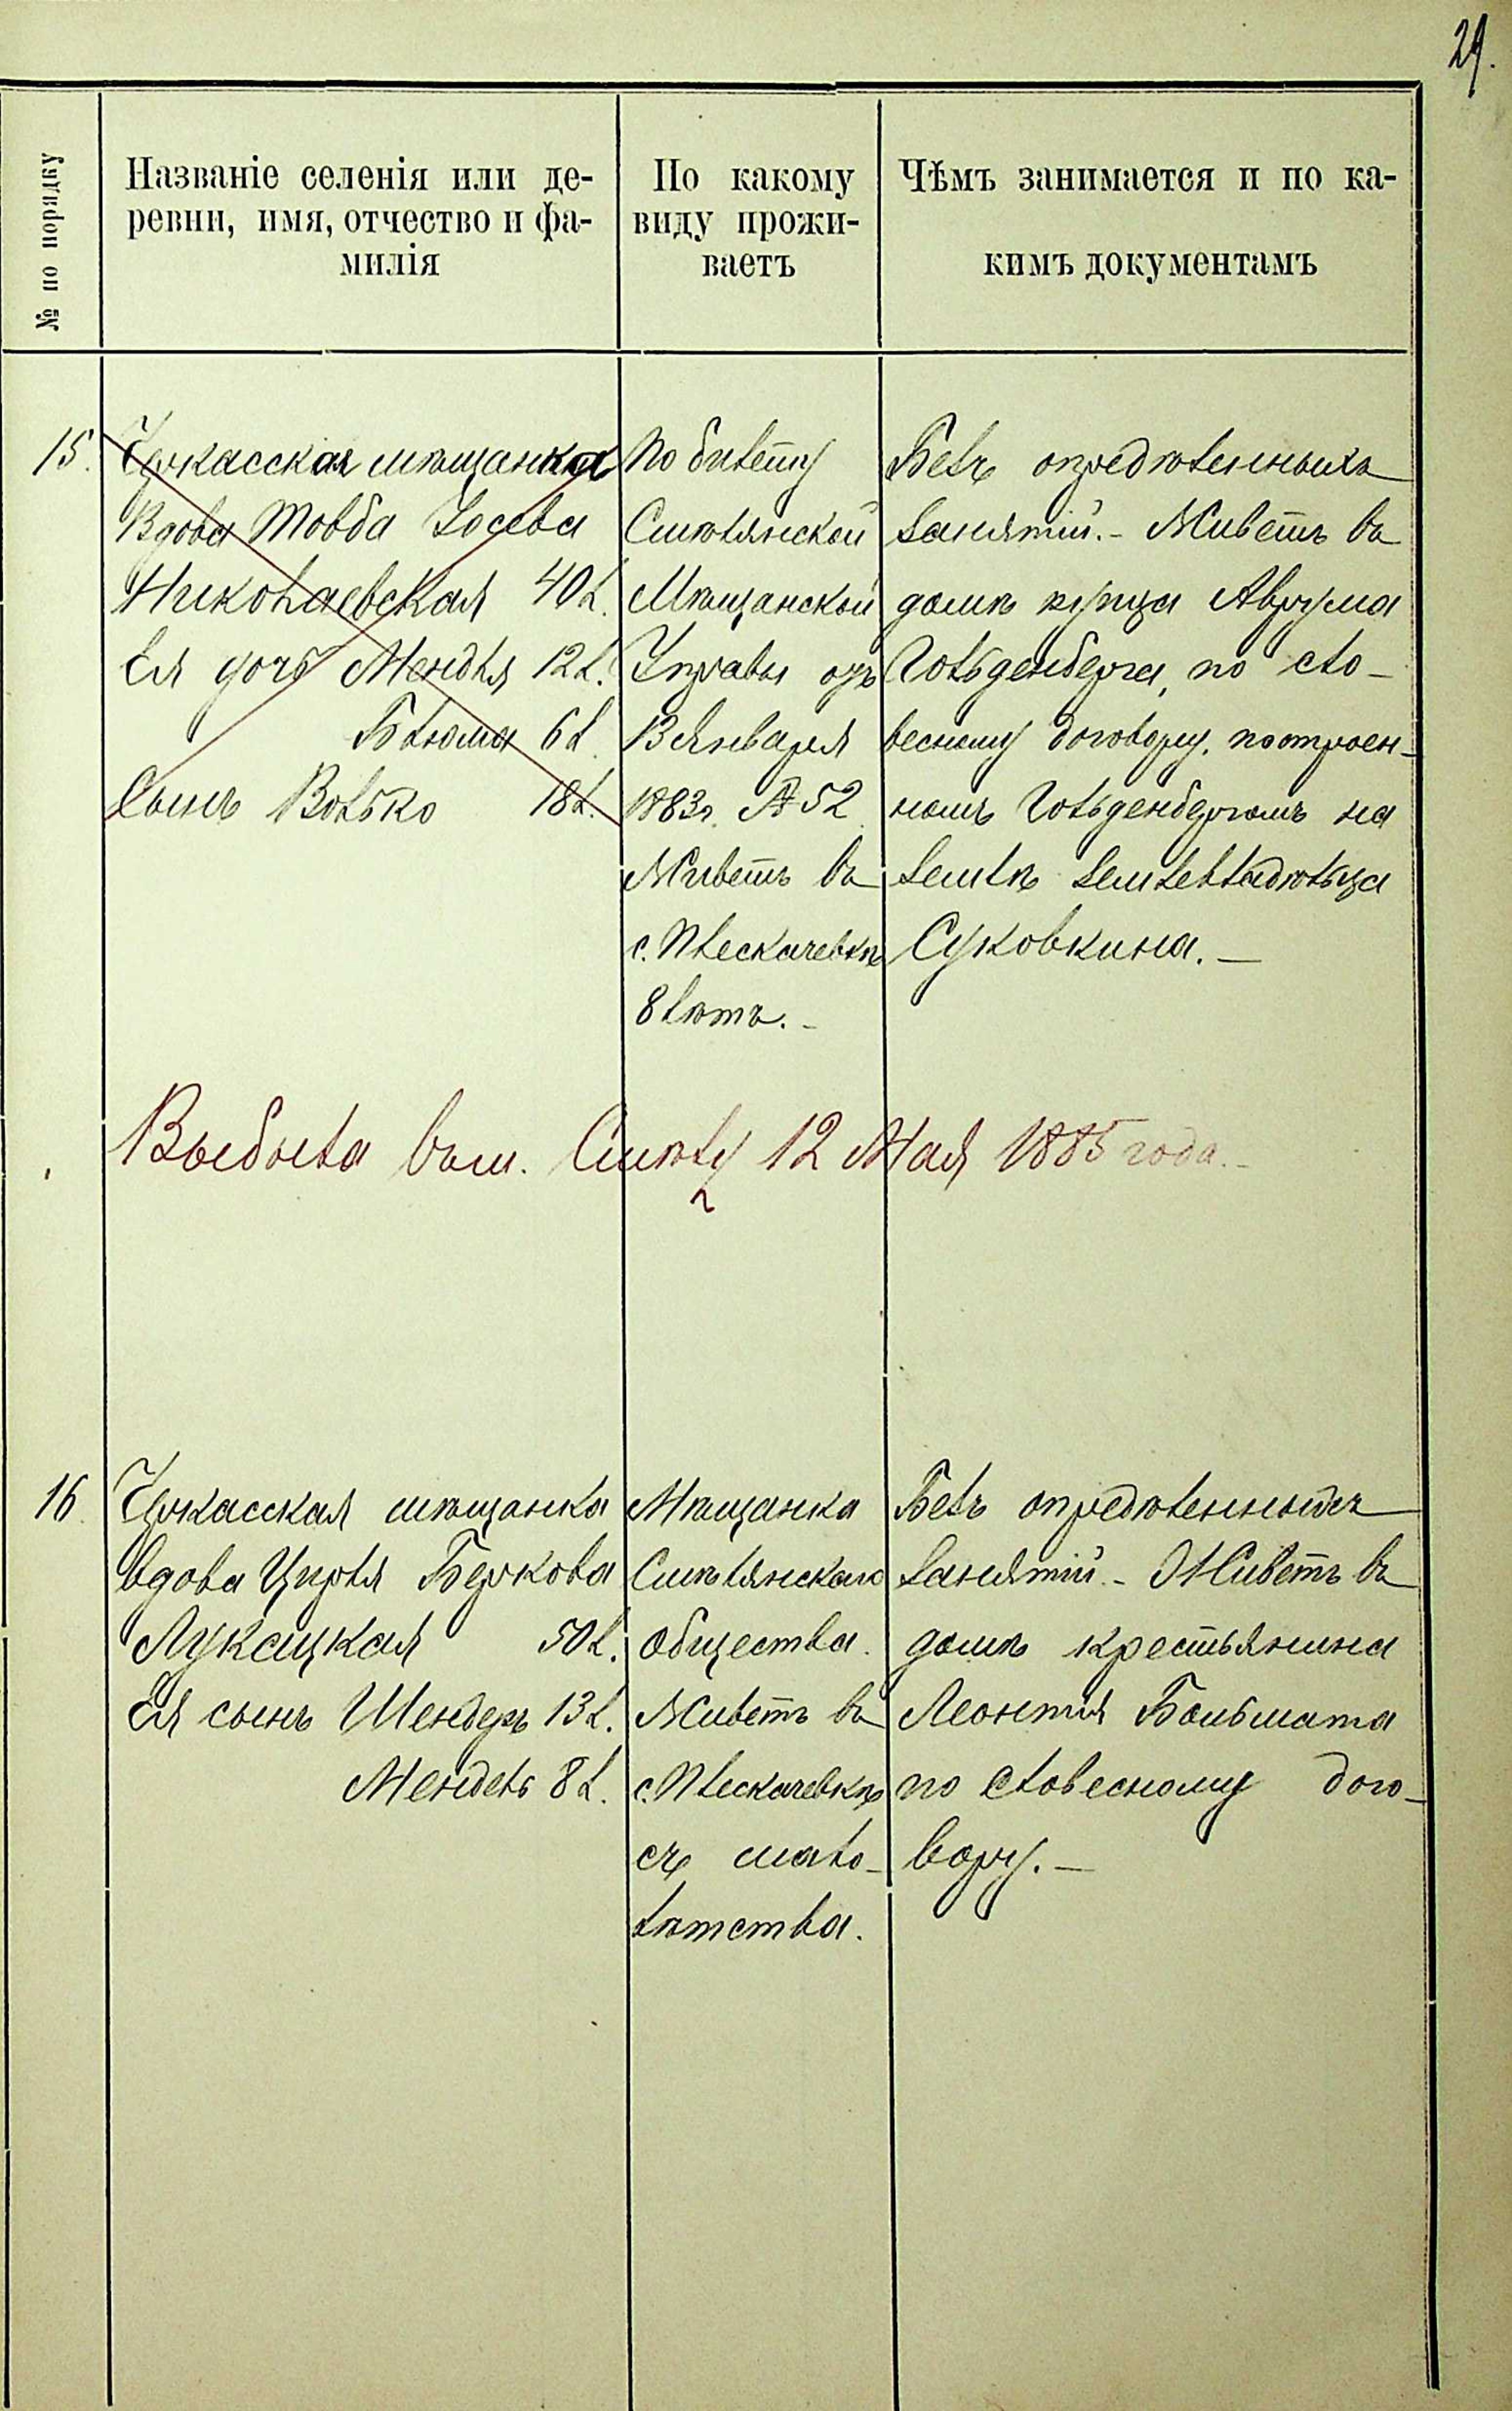 29.
№ по порядку
Названіе селенія или де-
ревни, имя, отчество и фа-
милія
По какому
виду прожи-
ваетъ
Чѣмъ занимается и по ка-
кимъ документамъ
15.
Черкасская мѣщанка
Вдова Товба Іосева
Николаевская 40 л.
Ея дочь Мендля 12 л.
Блюма 6 л.
Сынъ Волько 18 л.
По билету
Смѣлянской
Мѣщанской
Управы отъ
13 Января
1883 г. № 52
Живетъ въ
с. Плескачевкѣ
8 лѣтъ. -
Безъ опредѣленныхъ
занятій. - Живетъ въ
домѣ купца Аврума
Гольденберга, по сло-
весному договору, построен-
номъ Гольденбергомъ на
землѣ землевладѣльца
Суковкина. —
Выбыла въ м. Смѣлу 12 Мая 1885 года. -
16.
Черкасская мѣщанка
вдова Цирля Беркова
Лукацкая 50 л.
Ея сынъ Шендеръ 13 л.
Мендель 8 л.
Мѣщанка
Смѣлянскаго
общества.
Живетъ въ
с. Плескачевкѣ
съ мало-
лѣтства.
Безъ опредѣленныхъ
занятій. - Живетъ въ
домѣ крестьянина
Леонтія
по словесному дого-
вору. —